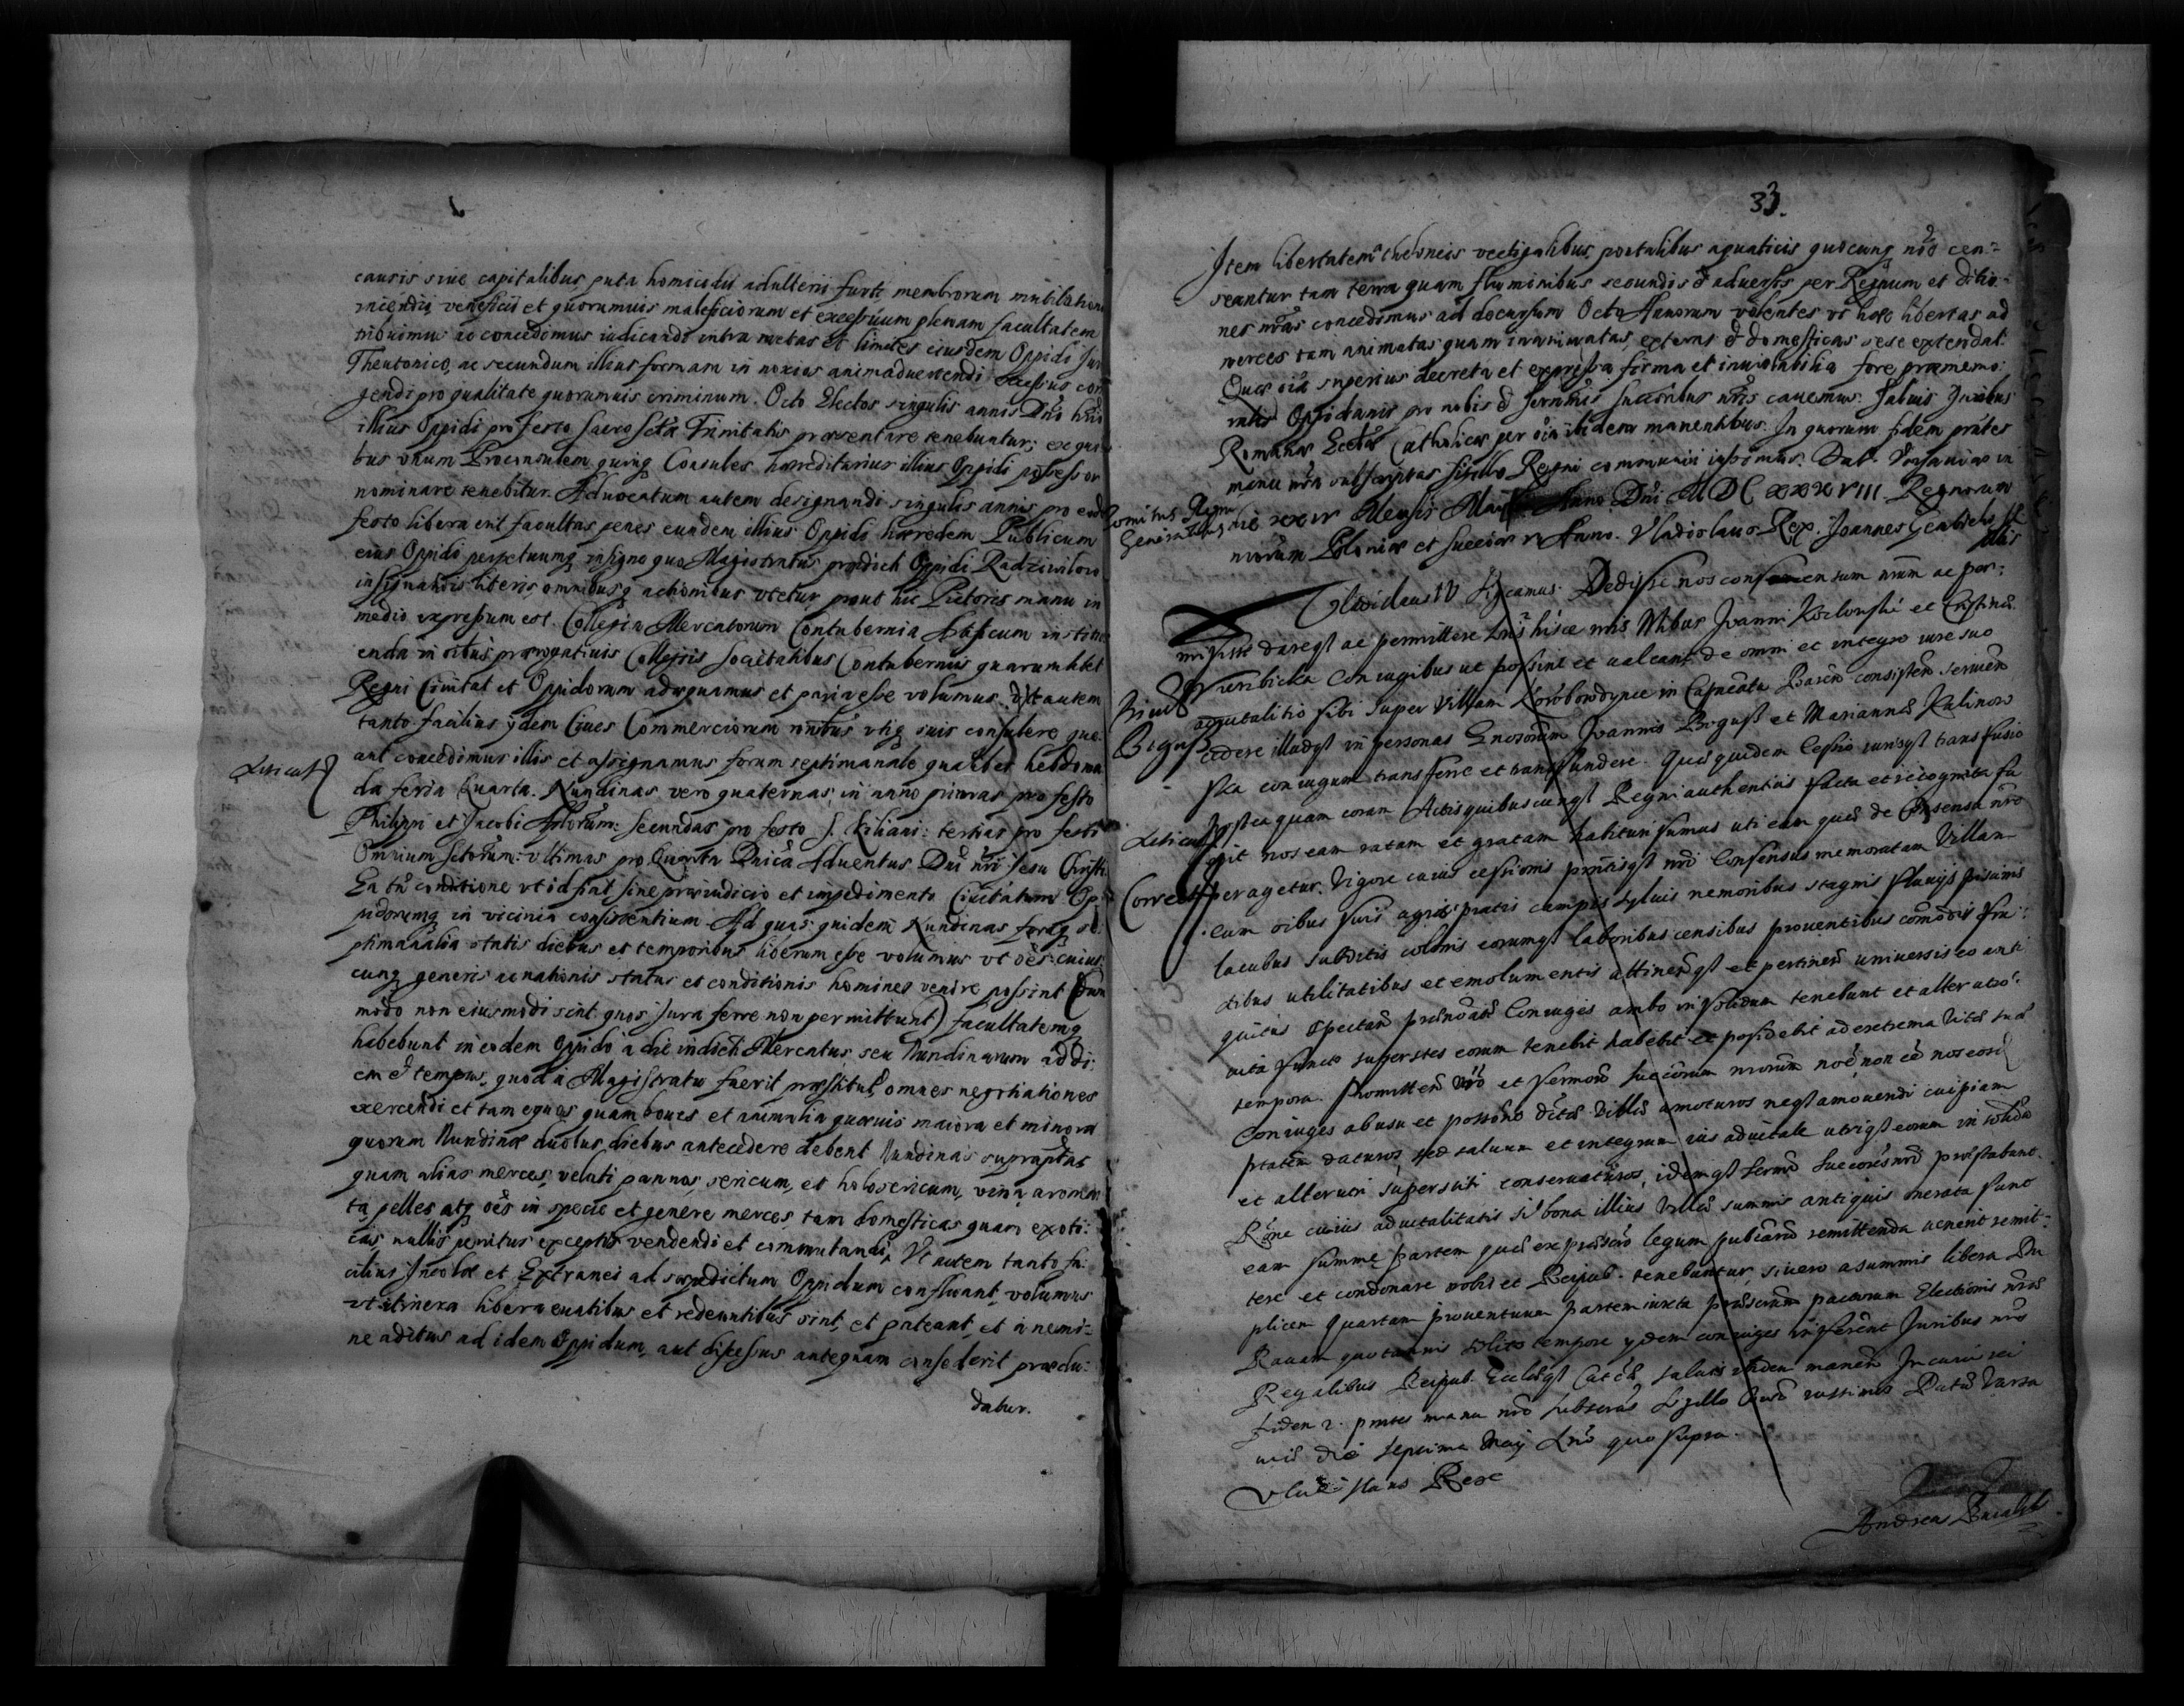 causis siue capitalibus, puta homicidii adulterii furti, membrorum mutilatione
incendii, veneficii et quorumuis maleficiorum et excessuum plenam facultatem
tribuimus ac concedimus iudicandi intra metas et limites eiusdem Oppidi Jure
Theutonico, ac secundum illius formam in noxios animaduertendi excessus corri
gendi pro qualitate quorumuis criminum. Octo Electos singulis annis Dño hrdo
illius Oppidi pro festo Sacro Sctæ Trinitatis præsentare tenebuntur; ex qui
bus vnum Proconsulem quinq Consules hæreditarius illius Oppidi possessor
nominare tenebitur. Aduocatum autem designandi singulis annis pro eodē
festo libera erit facultas penes eundem illius Oppidi hæredem Publicum
eius Oppidi perpetuumq insigne quo Magistratus prædicti Oppidi Radziwilow
in signandis literis, omnibusq actionibus vtetur, prout hic Pictoris manu in
medio expressum est. Collegia Mercatorum Contubernia Artificum institu
enda in oibus prærogatiuis Collegiis Societatibus Contuberniis quarumlibet
Regni Ciuitat et Oppidorum adæquamus et paria esse volumus. Vt autem
tanto facilius ydem Ciues Commerciorum vsibus vtiq suis consulere que
ant concedimus illis et assignamus forum septimanale qualibet hebdoma
da feria Quarta. Nundinas vero quaternas in anno primas pro festo
Philippi et Jacobi Aplorum: secundas pro festo S. Kiliani: tertias pro festo
Omnium Sctorum: vltimas pro Quarta Dnica Aduentus Dni nri Iesu Christi
Ea tñ conditione vt id fiat sine præiudicio et impedimento Ciuitatum Op
pidorumq in vicinia consistentium. Ad quas quidem Nundinas foraq se
ptimanalia statis diebus et temporibus liberum esse volumus vt oes cuius
cunq generis ac nationis status et conditionis homines venire possint (dum
modo non eiusmodi sint quos Jura ferre non permittunt) facultatemq
habebunt in eodem Oppido a die indicti Mercatus seu Nundinarum ad di
em et tempus, quod a Magistratu fuerit præstitut, omnes negotiationes
exercendi et tam equos quam boues et animalia quæuis maiora et minora
quorum Nundinæ duobus diebus antecedere debent Nundinas supraptas
quam alias merces, veluti pannos, sericum, et holosericum, vina, aroma
ta, pelles atq oes in specie et genere merces, tam domesticas quam exoti:
cas, nullis penitus exceptis vendendi et commutandi, Vt autem tanto fa:
cilius Incolæ et Extranei ad supradictum Oppidum confluant, volumus
vt itinera libera euntibus et redeuntibus sint, et pateant, et a nemi:
ne aditus ad idem Oppidum, aut discessus antequam consederit præclu:
datur.
Leticat
33.
Item libertatem a theloneis vectigalibus, portalibus aquaticis quocunq nõe cen:
seantur tam terra quam fluminibus secundis et aduersis per Regnum et ditio:
nes nras concedimus ad decursum Octo Annorum volentes vt hæc libertas ad
merces tam animatas quam inanimatas, externas et domesticas sese extendat.
Quæ oia superius decreta et expressa firma et inuiolabilia fore præmemo:
ratis Oppidanis pro nobis et Sernmis Succoribus nris cauemus. Saluis Juribus
Romanæ Eccliæ Catholicæ per oia ibidem manentibus. In quorum fidem præntes
manu nra subscriptas sigillo Regni communiri iussimus. Dat. Varsauiæ in
Comitiis Regni
Generalibus die xxiv Mensis Anno Dni MDCxxxVIII. Regnorum
nrorum Poloniæ et Sueciæ v Anno. Vladislaus Rex. Joannes Gembicki
Vladislaus IV Significamus. Dedisse nos consensum nrum ac per:
misisse daregst ac permittere Lnis hisce nris Nbilibus Joanni et Christinæ
Wierzbicka Coniugibus ut possint et ualeant de omni et integro iure suo
aduitalitio sibi super Villam in Capneatu consisten seruien
cedere illudgst in personas Gnosorum Joannis Bogusz et Mariannæ Kalinow
ska coniugum transferre et transfundere. Quæ quidem Cessio iurisgst transfusio
postea quam coram Actis quibuscungst Regni authenticis facta et recognita fu
erit nos eam ratam et gratam habituri sumus uti eam quæ de Consensu nro
peragetur. Vigore cuius cessionis præntisgst nri Consensus memoratam Villam
cum oibus suis agris pratis campis syluis nemoribus stagnis fluuijs piscinis
lacubus subditis colonis eorumgst laboribus censibus prouentibus comodis fru:
ctibus utilitatibus et emolumentis attinengst et pertinen uniuersis eo anti
quitus spectan prænoati Coniuges ambo in solidum tenebunt et alterutro
uita functo superstes eorum tenebit habebit et possidebit ad extrema uitæ suæ
tempora. Promitten nro et Sermorum Succorum nrorum nõe non eē nos eosd
Coniuges ab usu et possione dictæ Villæ amoturos negst amouendi cuipiam
ptatem daturos, sed saluum et integrum ius aduitale utrigst eorum in solidum
et alterutri superstiti conseruaturos, idemgst Sermi Succores nri præstabunt.
Rõne cuius aduitalitatis si bona illius Villæ summis antiquis onerata sunt
eam summæ partem quæ ex præscripto legum publicarum remittenda uenerit remit:
tere et condonare nobis et Reipub. tenebuntur, si uero a summis libera Du
plicem quartam prouentuum partem iuxta præscriptum pactorum Electionis nræ
Rauam quotannis solito tempore ydem coniuges inferent Juribus nris
Regalibus Reipub. Ecclægst Catcæ saluis ibidem manen. In cuius rei
fidem præntes manu nra subscras Sigillo Regni iussimus. Datæ Varsa
uiæ die septima Maij Anno quo supra.
Vladislaus Rex
Andreas
Bogusz
Leticat
Correct